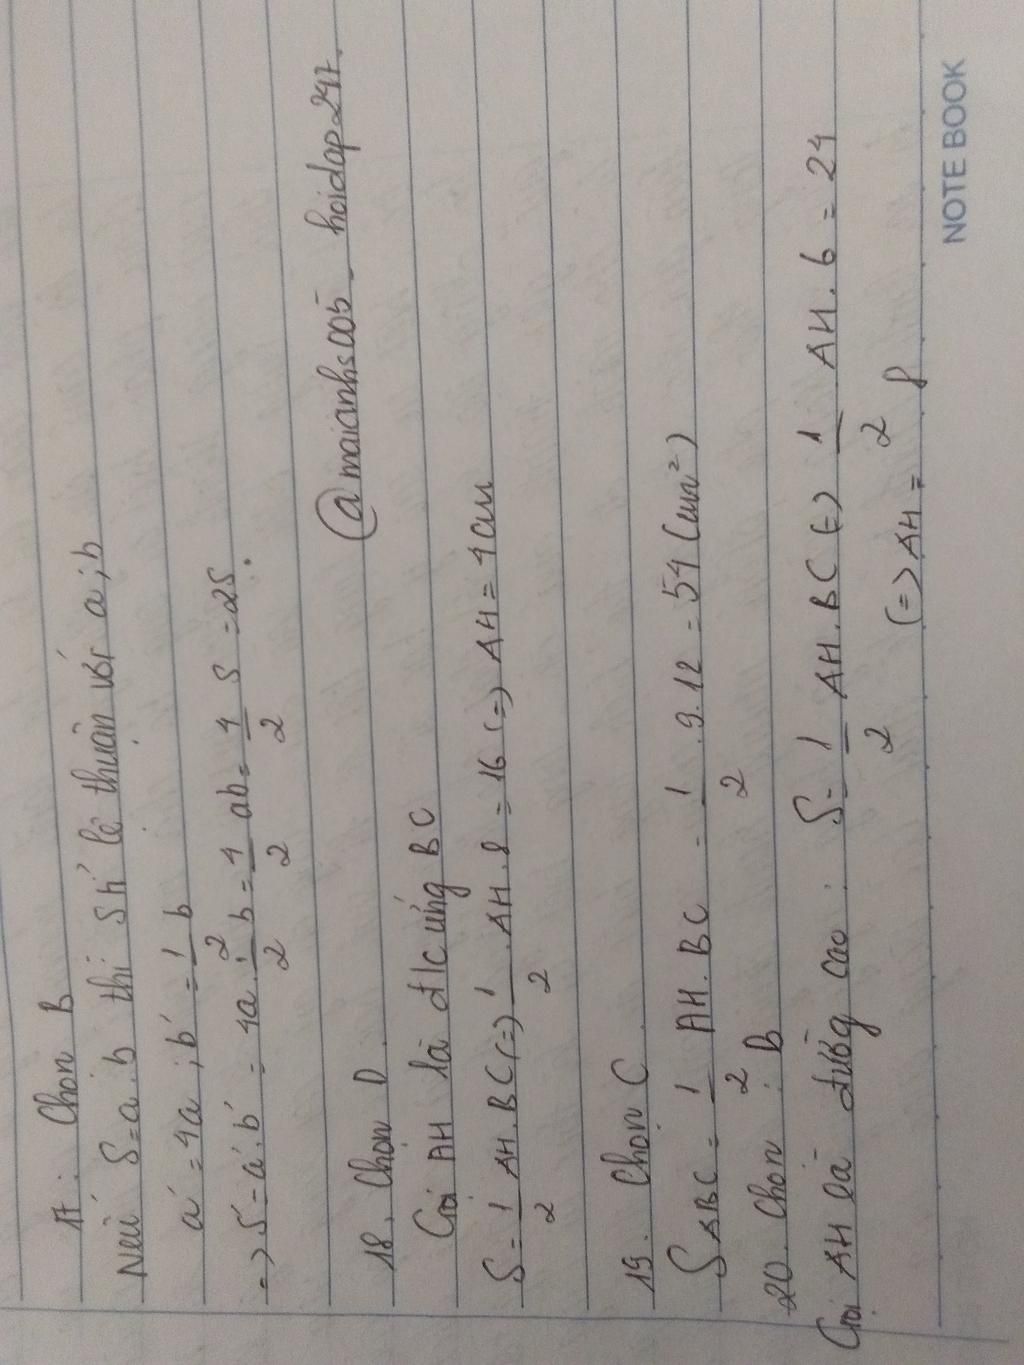 17: Chọn B
Nếu S = a.b thì S tỉ lệ thuận với a; b
a' = 4a ; b' = 1/2 b
=> S' = a'.b' = 4a. 1/2 b = 4/2 ab = 4/2 S = 2S.
@maianhs005_hoidap247.
18. Chọn D
Gọi AH là đ/c ứng BC
S = 1/2 AH.BC (=) 1/2 .AH.8 = 16 (=) AH = 4cm
19. Chọn C
S ABC = 1/2 AH.BC = 1/2 .9.12 = 54 (cm²)
20. Chọn : B
Gọi AH là đường cao : S = 1/2 AH.BC (=) 1/2 AH.6 = 24
(=) AH = 8
NOTE BOOK